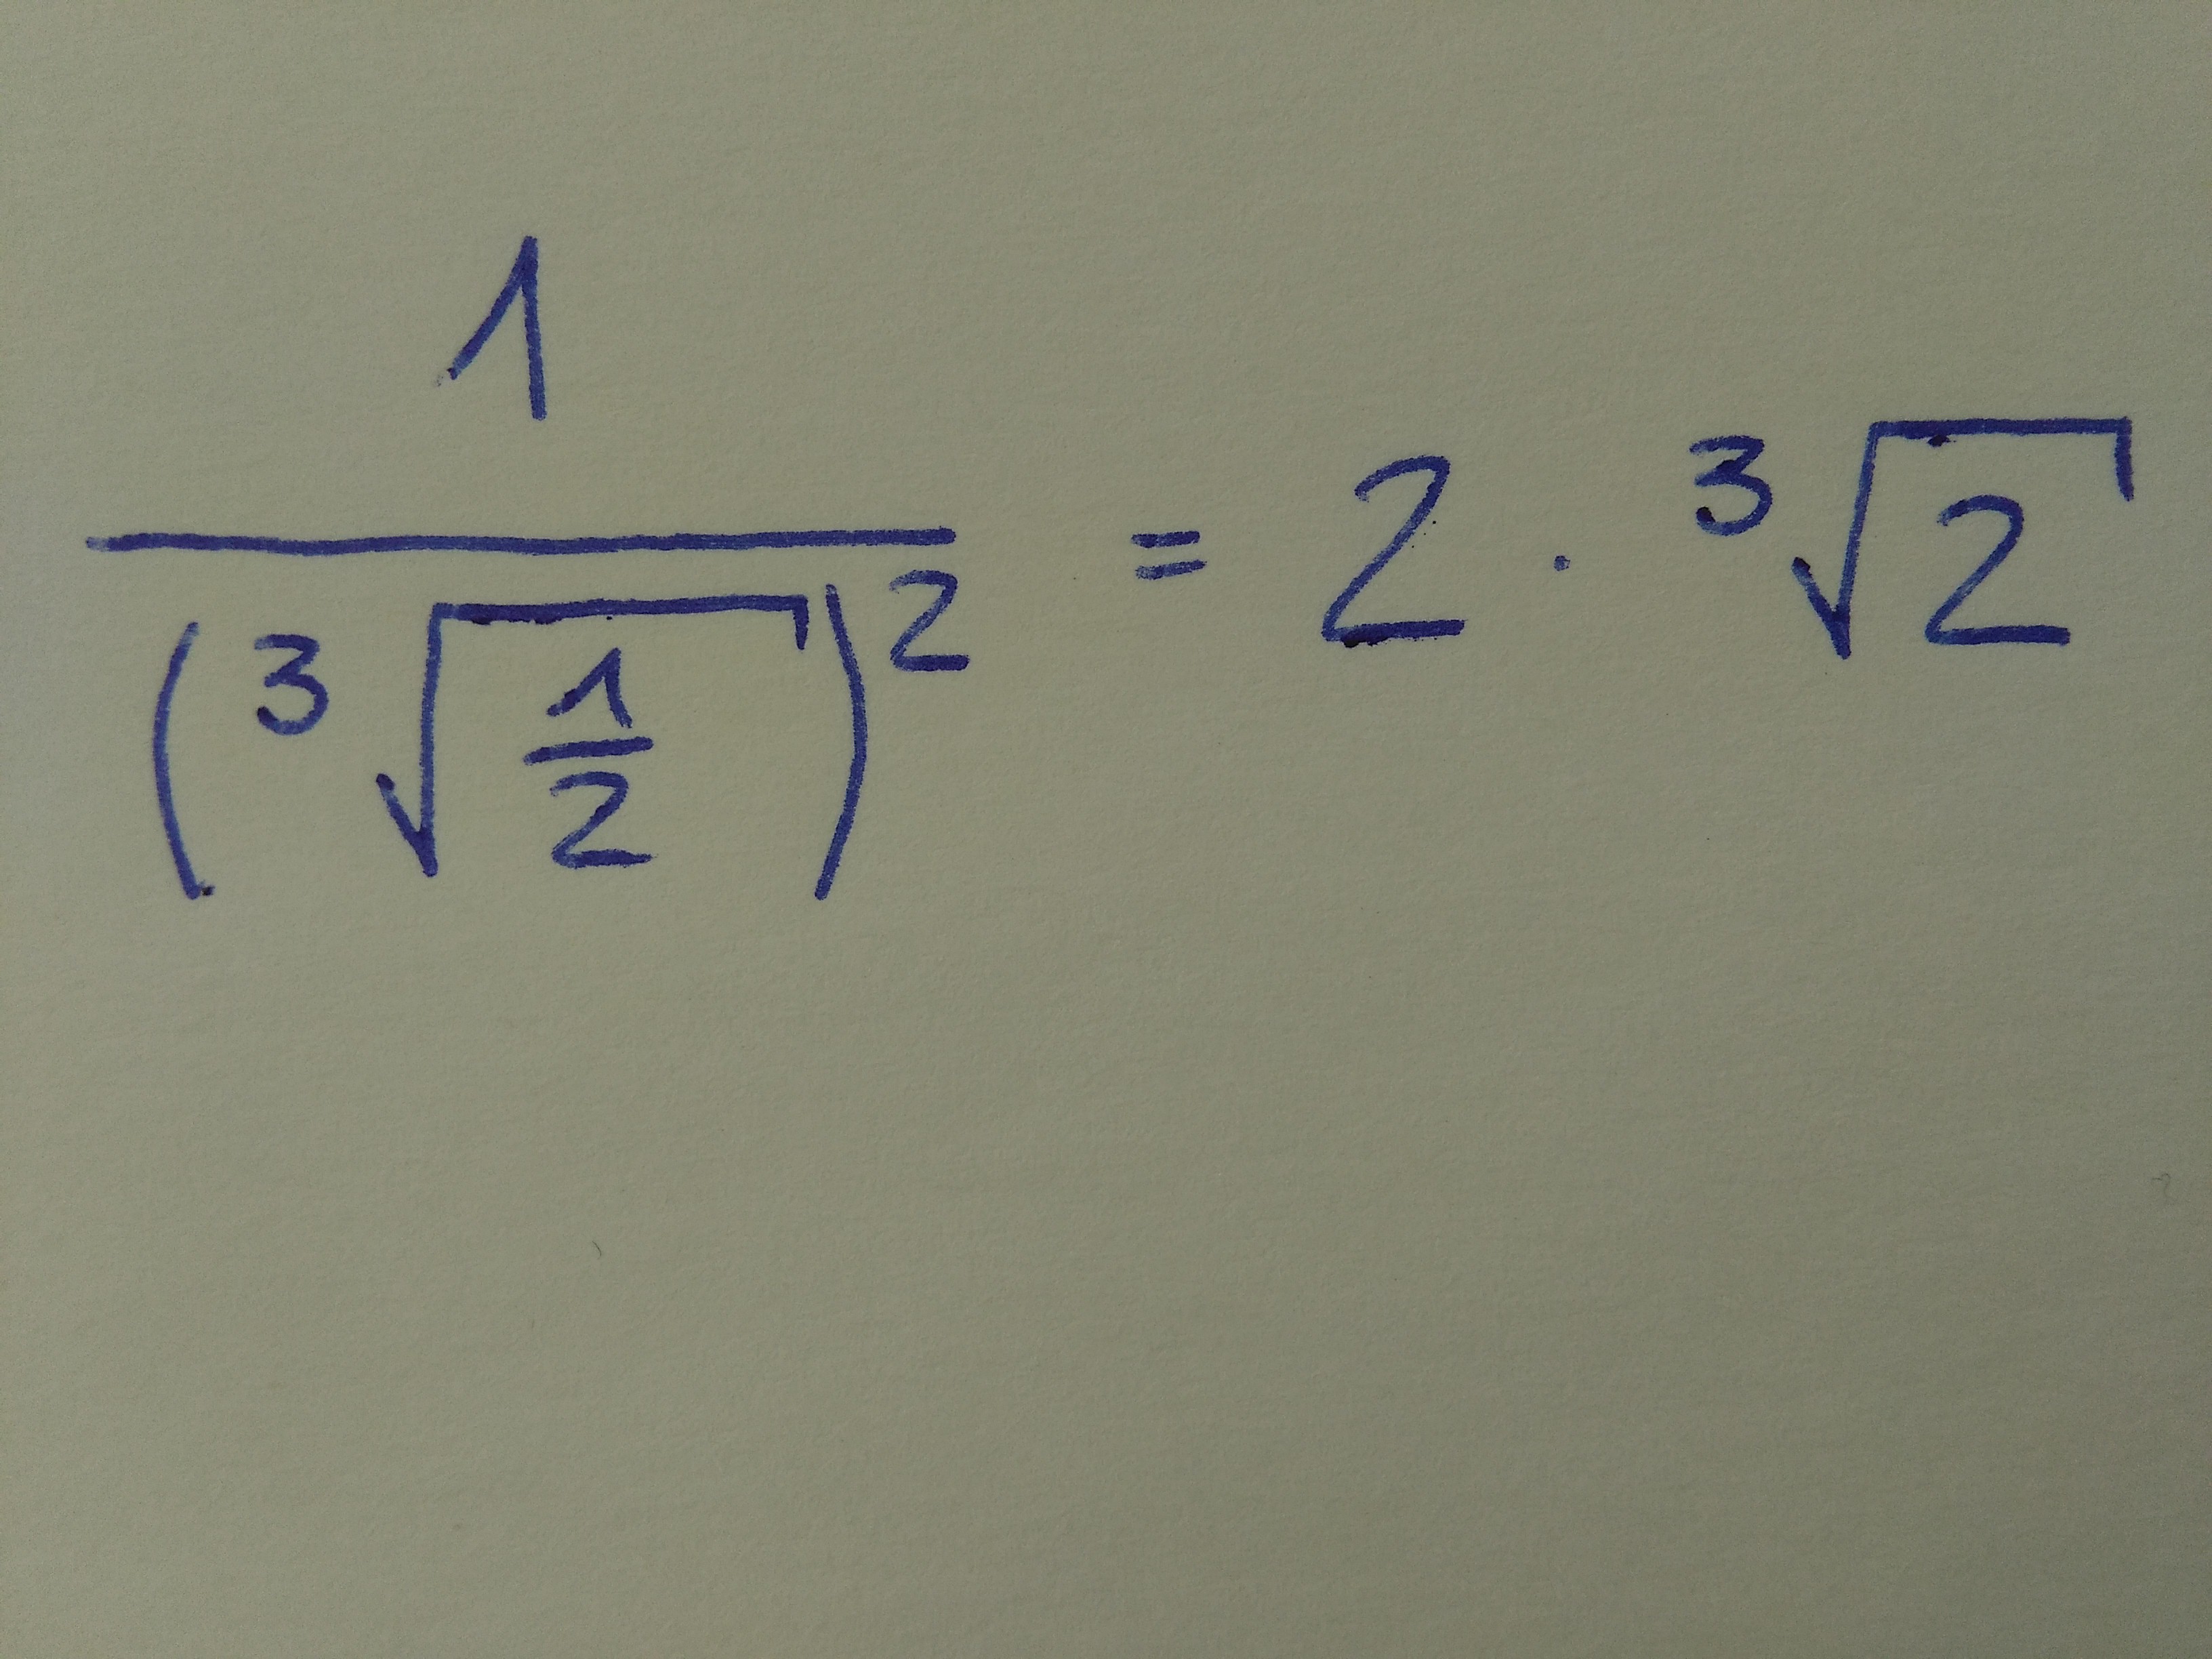 1/(³√(1/2))² = 2 · ³√2